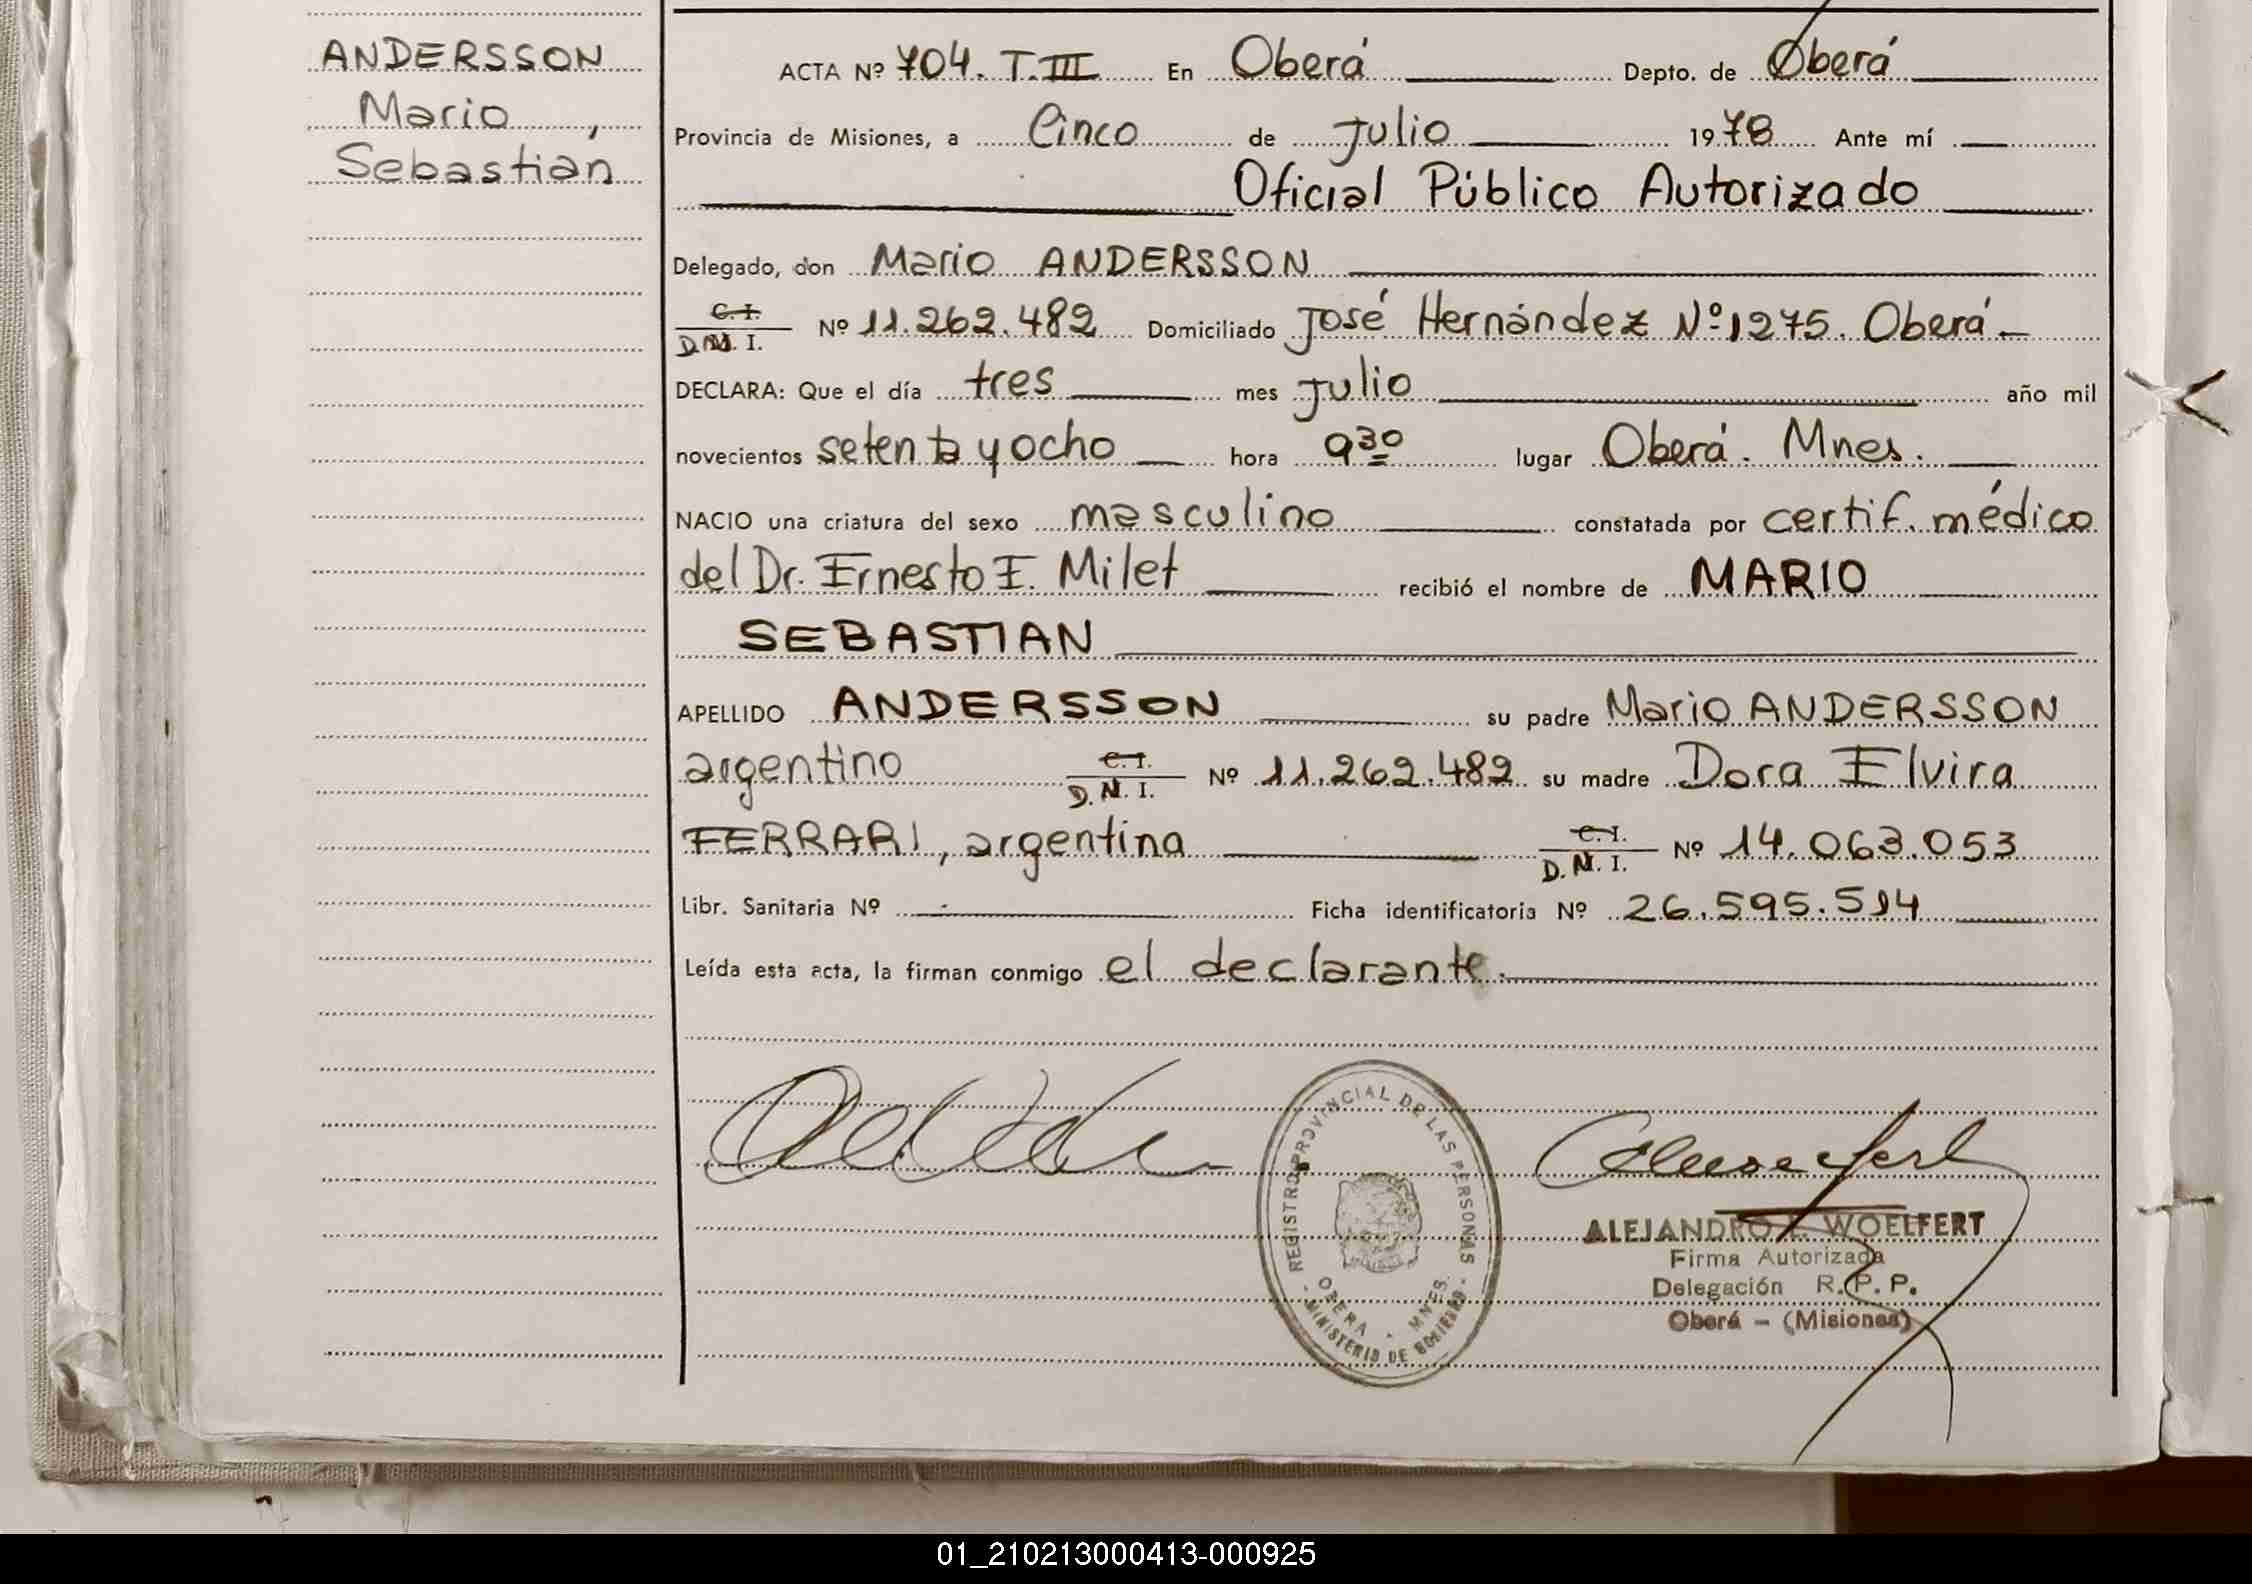 ANDERSSON
Mario
Sebastián
ACTA Nº 704. T.III En Oberá Depto. de Oberá
Provincia de Misiones, a Cinco de Julio 1978 Ante mí
Oficial Público Autorizado
Delegado, don Mario ANDERSSON
C. I.
D.N. I. Nº 11.262.482 Domiciliado José Hernández Nº 1275. Oberá
DECLARA: Que el día tres mes Julio año mil
novecientos setenta y ocho hora 9 30 lugar Oberá. Mnes.
NACIO una criatura del sexo masculino constatada por certif. médico
del Dr. Ernesto E. Milet recibió el nombre de MARIO
SEBASTIAN
APELLIDO ANDERSSON su padre Mario ANDERSSON
argentino C. I.
D. N. I. Nº 11.262.482 su madre Dora Elvira
FERRARI, argentina C. I.
D. N. I. Nº 14.063.053
Libr. Sanitaria Nº Ficha identificatoria Nº 26.595.514
Leída esta acta, la firman conmigo el declarante.
REGISTRO PROVINCIAL DE LAS PERSONAS
OBERA - MNES.
- MINISTERIO DE GOBIERNO -
ALEJANDRO WOELFERT
Firma Autorizada
Delegación R. P. P.
Oberá - (Misiones)
01_210213000413-000925